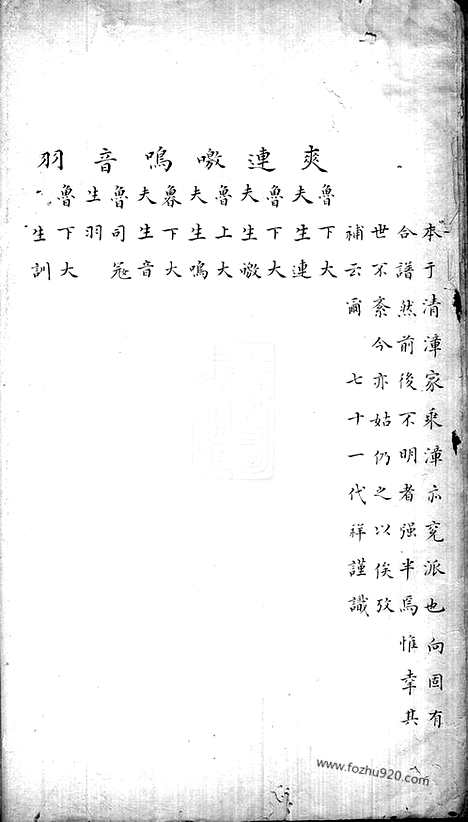 本于清漳家乘漳亦兗派也向固有
合譜然前後不明者强半焉惟幸其
世不紊今亦姑仍之以俟攷
補云爾　七十一代祥謹識
爽
魯下大
夫生連
連
魯下大
夫生噭
噭
魯上大
夫生鳴
鳴
魯下大
夫生音
音
魯司冦
生羽
羽
魯下大
生訓
www.fozhu920.com